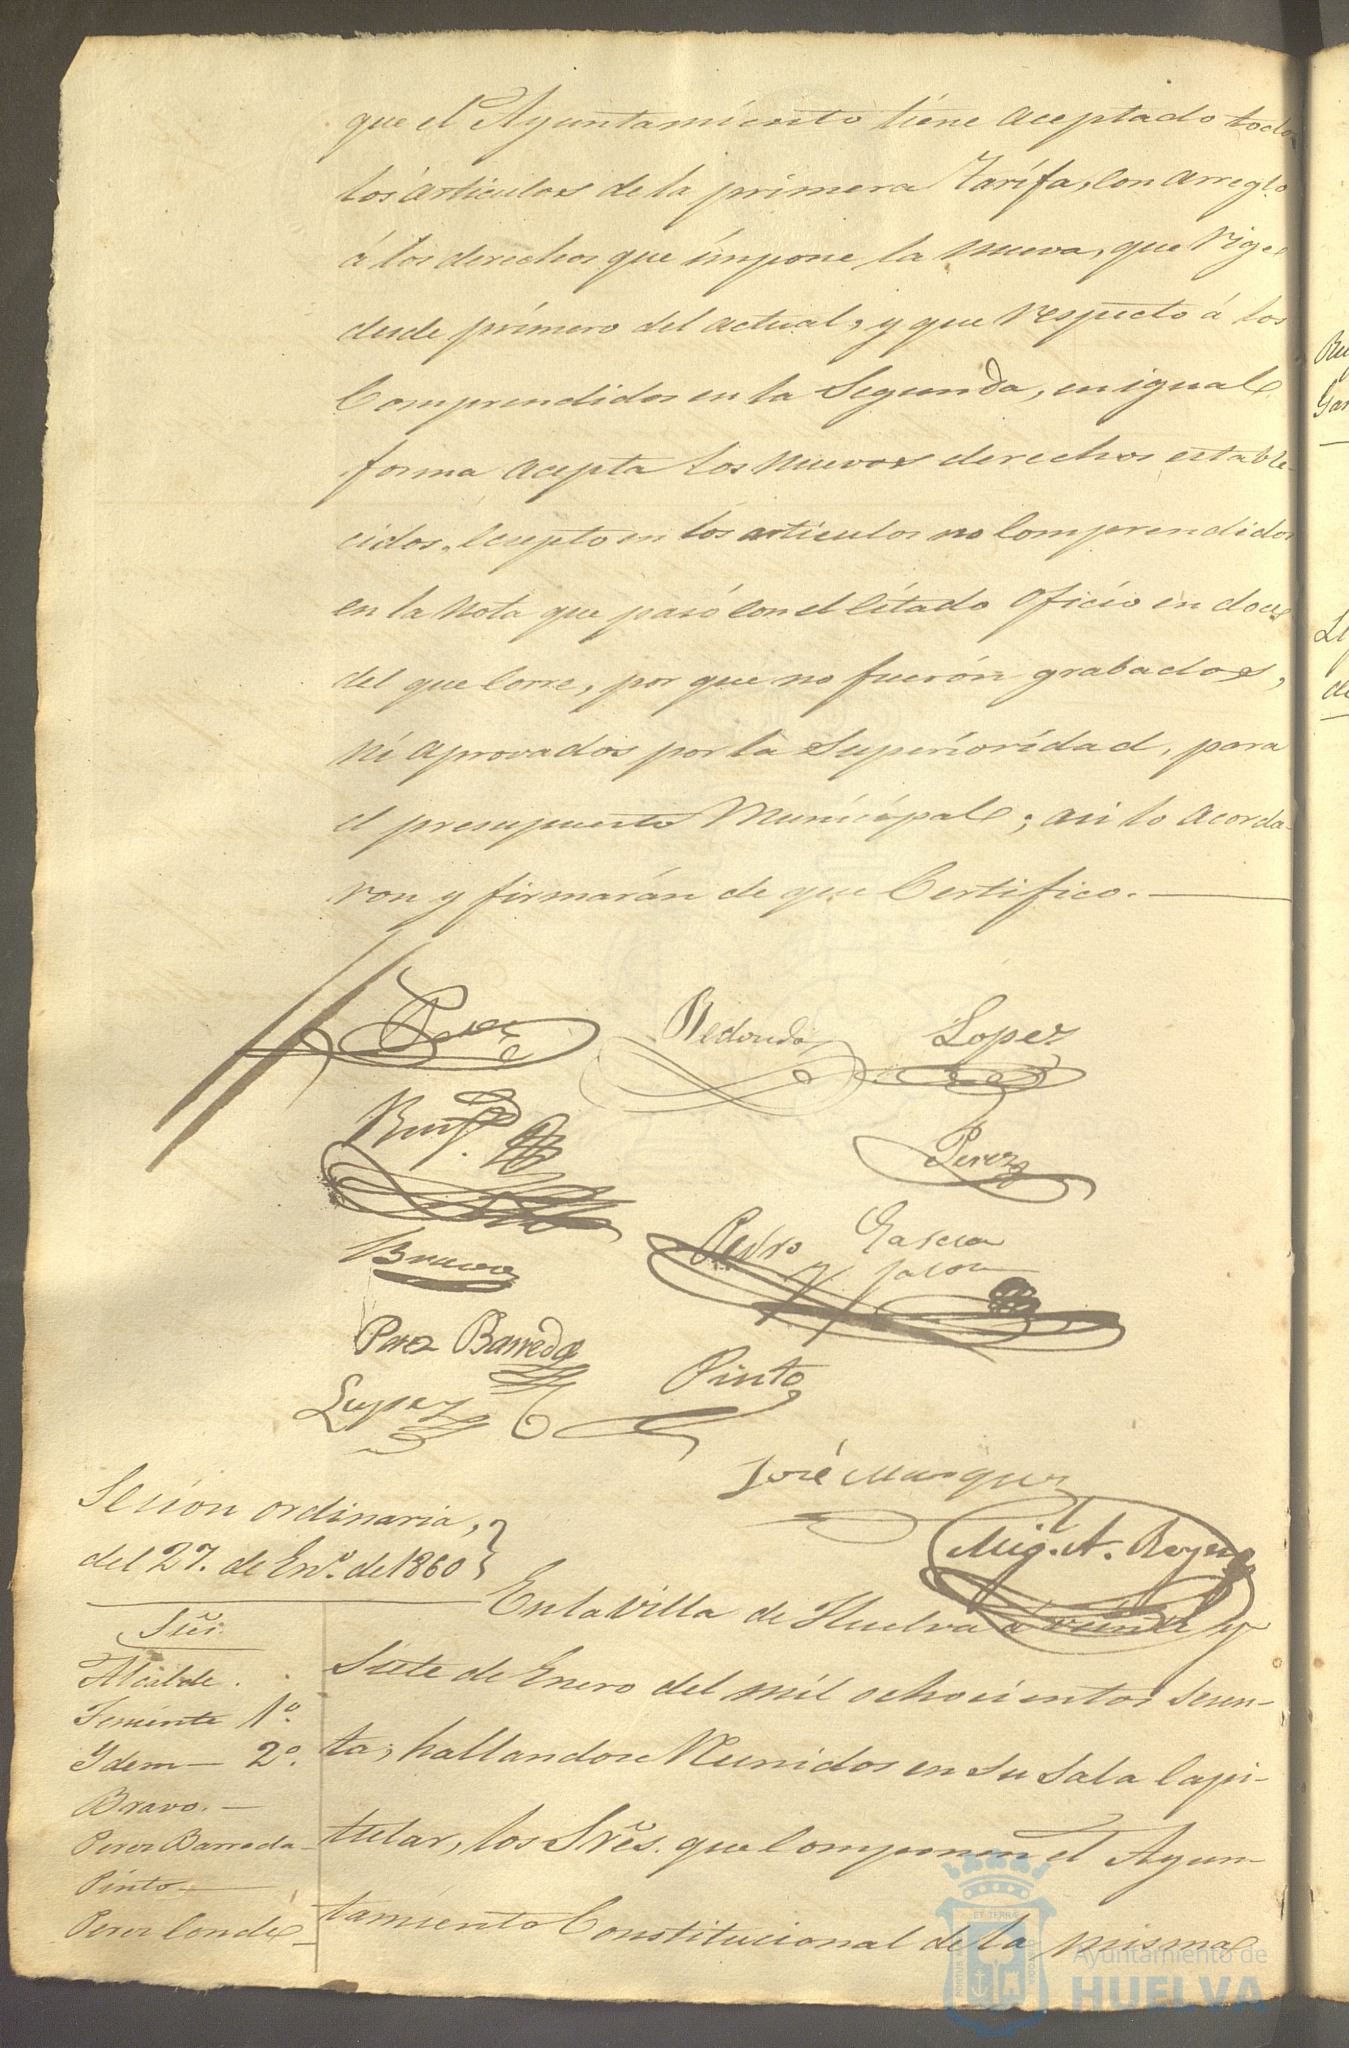 que el Ayuntamiento tiene aceptado todos
los articulos de la primera Tarifa, con arreglo
á los derechos que impone la nueva, que rige
desde primero del actual, y que respecto á los
Comprendidos en la Segunda, en igual
forma acepta los nuevos derechos estable-
cidos, Escepto en los articulos no Comprendidos
en la nota que pasó con el citado oficio en doce
del que Corre, por que no fuerón grabados,
ni aprovados por la Superioridad, para
el presupuesto Municipal; asi lo acorda-
ron y firmarán de que Certifico.
Redondo
Lopez
Perez
Bravo
Pedro Garcia
Jalon
Perez Barreda
Pinto
Lopez
José Marquez
Mig. A. Reyes
Sesion ordinaria,
del 27. de En.º de 1860
En la Villa de Huelva á veinte y
Sres.
Alcalde.
Teniente 1º.
Ydem 2º.
Bravo.
Perez Barreda
Pinto
Perez Conde
Siete de Enero del mil ochocientos sesen-
ta, hallandose Reunidos en su Sala Capi-
tular, los Sres. que componen el Ayun-
tamiento Constitucional de la misma
Ayuntamiento de
HUELVA